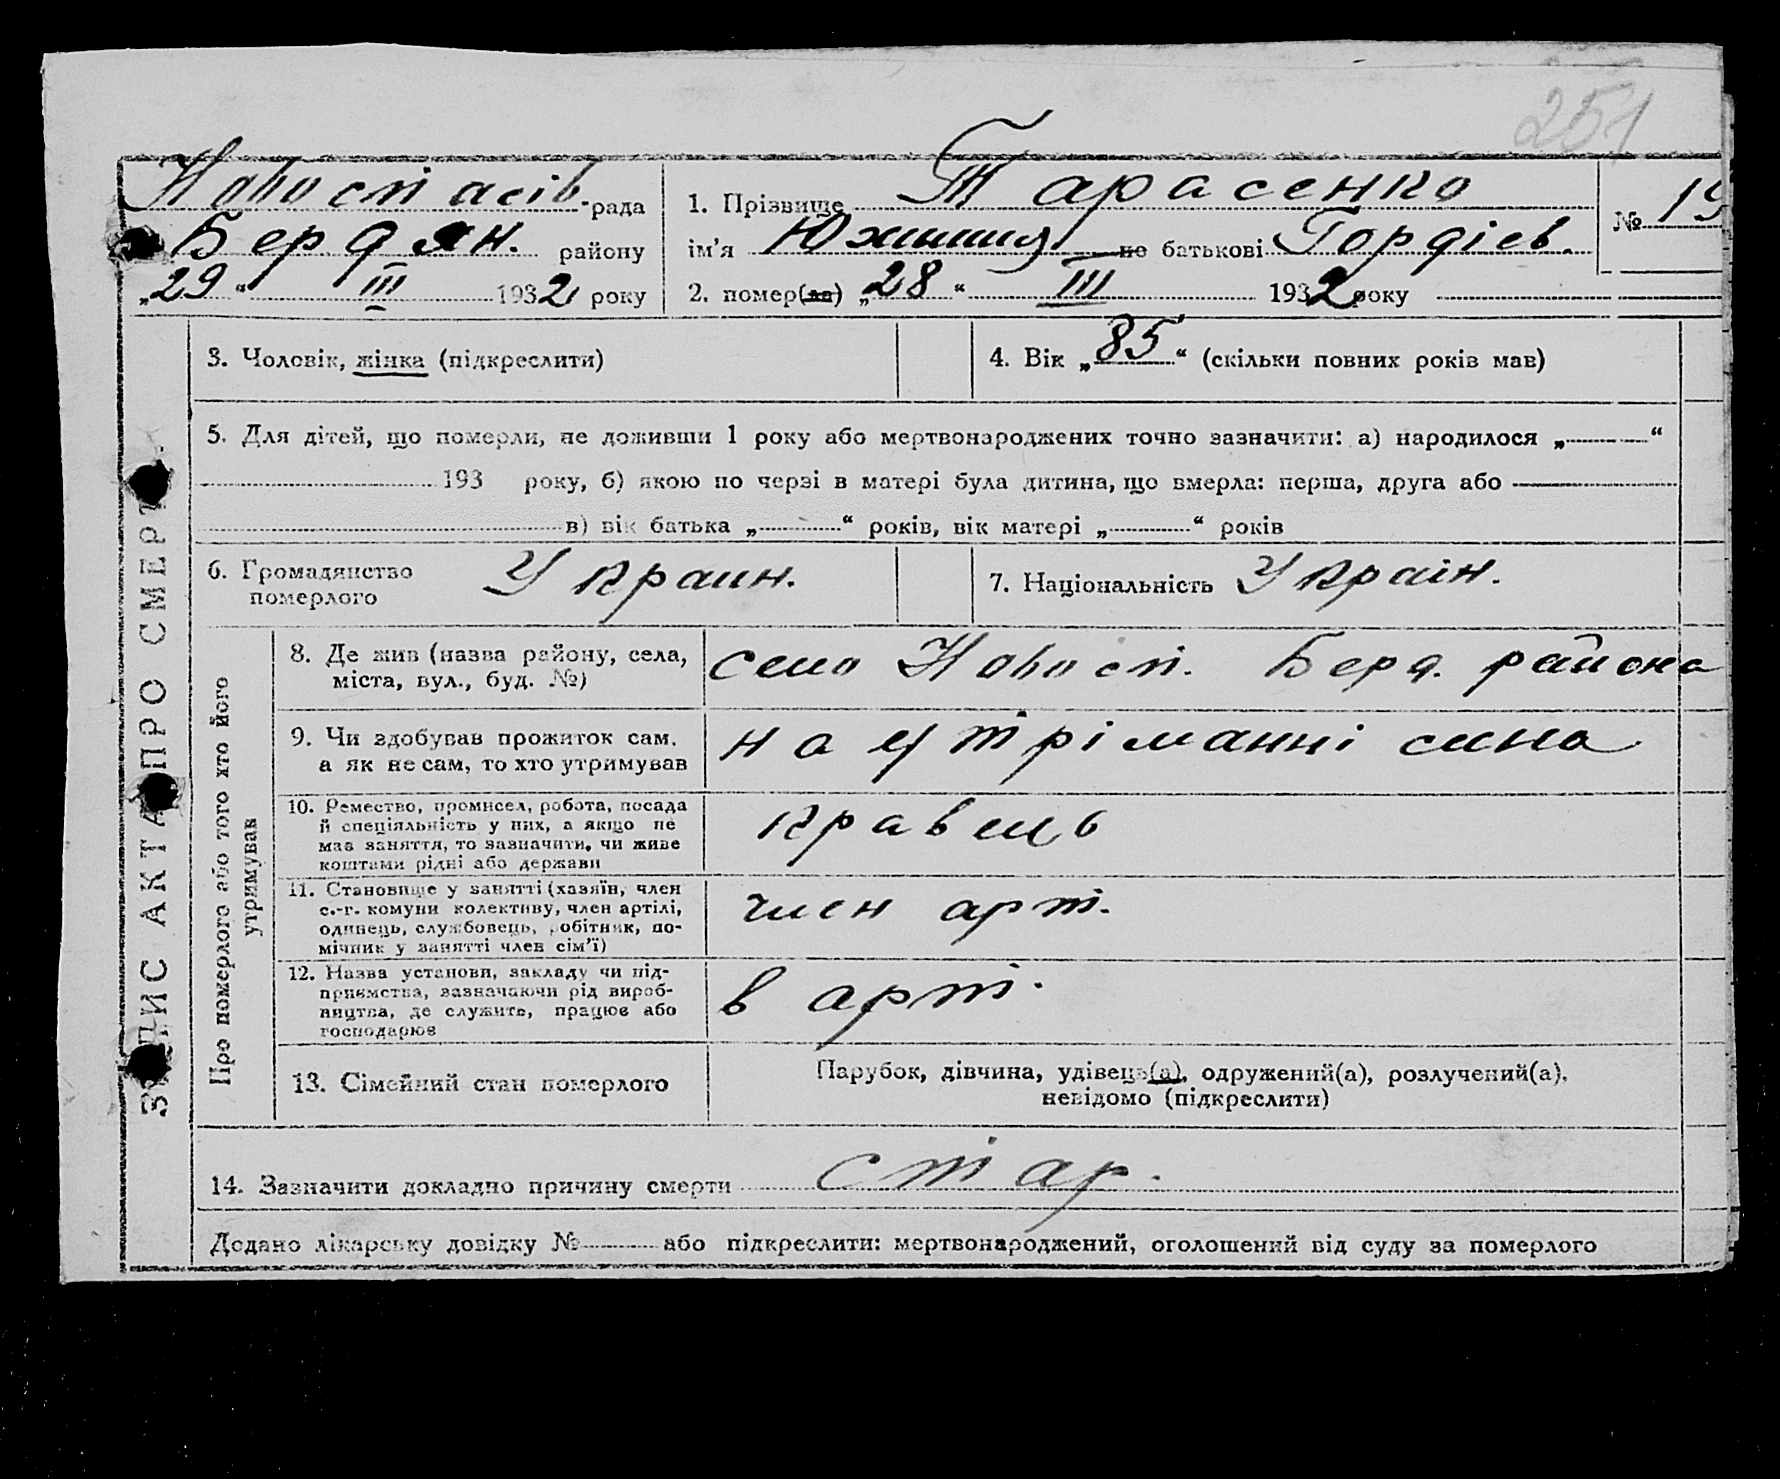 251
Новоспасів. рада
Бердян. району
„29“ III 1932 року
1. Прізвище Тарасенко
ім'я Юхимія по батькові Гордієв.
2. помер(ла) „28“ III 1932 року
№ 19
3. Чоловік, жінка (підкреслити)
4. Вік „85“ (скільки повних років мав)
5. Для дітей, що померли, не доживши 1 року або мертвонароджених точно зазначити: а) народилося „ “
193 року, б) якою по черзі в матері була дитина, що вмерла: перша, друга або
в) вік батька „ “ років, вік матері „ “ років
6. Громадянство
померлого
Украин.
7. Національність Украін.
ЗАПИС АКТА ПРО СМЕРТЬ
Про померлого або того хто його
утримував
8. Де жив (назва району, села,
міста, вул., буд. №)
село Новосп. Берд. района
9. Чи здобував прожиток сам,
а як не сам, то хто утримував
на утріманні сина
10. Ремество, промисел, робота, посада
й спеціяльність у них, а якщо не
мав заняття, то зазначити, чи живе
коштами рідні або держави
кравець
11. Становище у занятті (хазяїн, член
с.-г. комуни колективу, член артілі,
одинець, службовець, робітник, по-
мічник у занятті член сім'ї)
член арт.
12. Назва установи, закладу чи під-
приємства, зазначаючи рід вироб-
ництва, де служить, працює або
господарює
в арт.
13. Сімейний стан померлого
Парубок, дівчина, удівець(а), одружений(а), розлучений(а),
невідомо (підкреслити)
14. Зазначити докладно причину смерти стар.
Додано лікарську довідку № або підкреслити: мертвонароджений, оголошений від суду за померлого